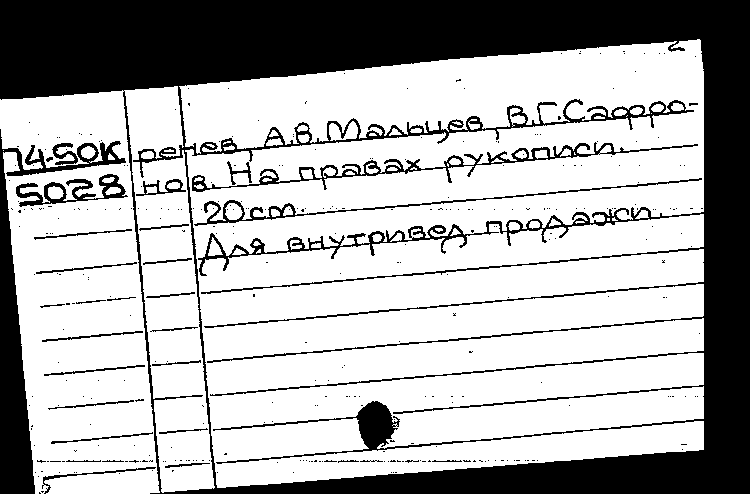 2
74-50К ренев, А.В.Мальцев, В.Г.Сафро-
5028 нов. На правах рукописи.
20см.
Для внутривед. продажи.
5